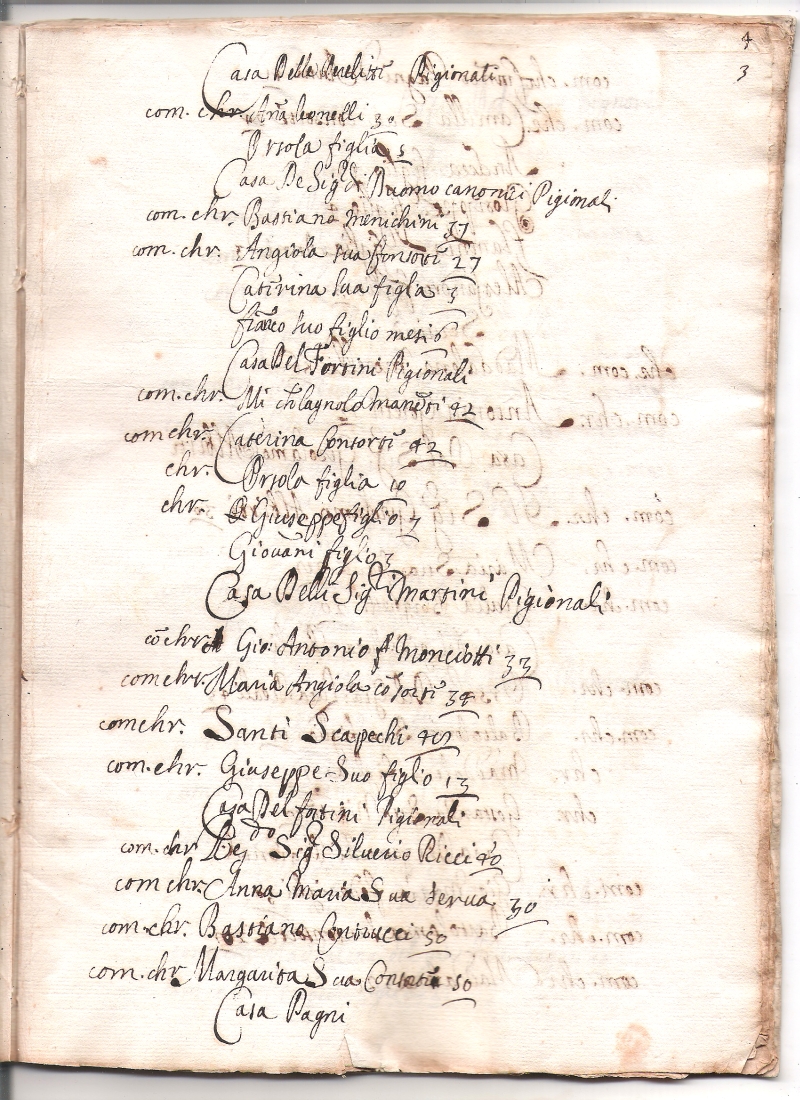 4
3
Casa Delle Pigionali
com. chr. Anna Leonelli 30
Orsola figlia 5
Casa De Sigri Duomo canonici Pigionali
com. chr. Bastiano Menichini 37
com. chr. Angiola sua Consorte 27
Caterina sua figlia 3
suo figlio mesi 6
Casa Del Fortini Pigionali
com. chr. Mi chlagnolo Manetti 42
com chr. Caterina Consorte 42
chr. Orsola figlia 10
chr. Giuseppe figlio 7
Giovani figlio 3
Casa Delli Sigri Martini Pigionali
cō chr. Gio: Antonio Monciotti 33
com chr. Maria Angiola cō sorte 34
com chr. Santi Scapechi
com. chr. Giuseppe Suo figlio 13
Casa Del fortini Pigionali
com. chr Rej do Sigr Silverio Ricci 40
com chr. Anna Maria Sua serva 30
com. chr. Bastiano 50
com. chr Margarita Sua Consorte 50
Casa Pagni